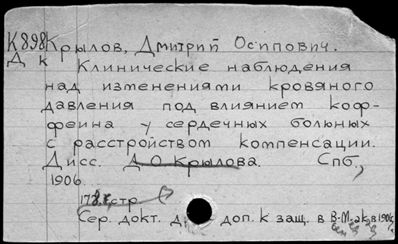 К898 Крылов, Дмитрий Осипович.
Д к Клинические наблюдения
над изменениями кровяного
давления под влиянием коф-
феина у сердечных больных
с расстройством компенсации.
Дисс. Д.О. Крылова. Спб,
1906.
178, стр.
Сер. докт. доп. к защ. в В.-М. ак. в 1906